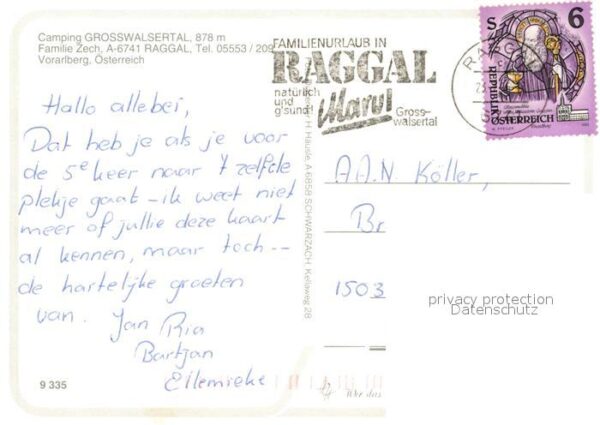 Camping GROSSWALSERTAL, 878 m
Familie Zech, A-6741 RAGGAL, Tel. 05553 / 209
Vorarlberg, Österreich
Hallo allebei,
Dat heb je als je voor
de 5e keer naar 't zelfde
plekje gaat - ik weet niet
meer of jullie deze kaart
al kennen, maar toch --
de hartelijke groeten
van. Jan Ria
Bartjan
Ellemieke
9 335
FAMILIENURLAUB IN
RAGGAL
natürlich
und
g'sund!
Marul
Gross-
walsertal
RAGGAL
S 6
REPUBLIK ÖSTERREICH
H. Hause, A-6858 SCHWARZACH, Kellaweg 28
A.A.N Köller,
Br
1503
privacy protection
Datenschutz
Wer das